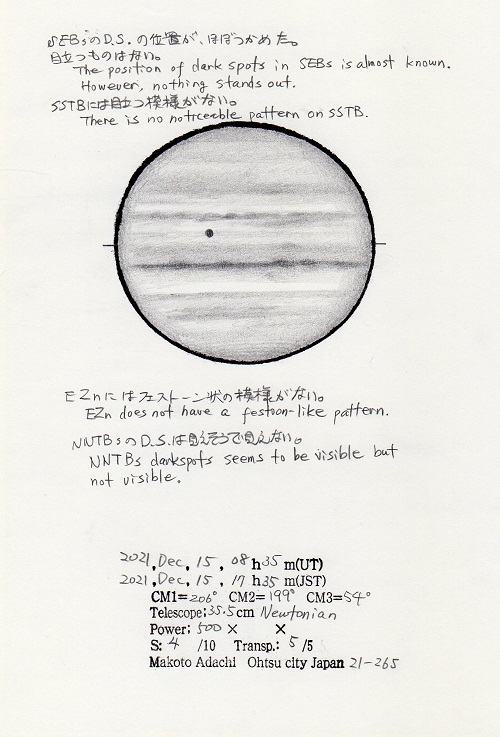 SEBsのD.S.の位置が、ほぼつかめた。
目立つものはない。
The position of dark spots in SEBs is almost known.
However, nothing stands out.
SSTBには目立つ模様がない。
There is no noticeable pattern on SSTB.
EZnにはフェストーン状の模様がない。
EZn does not have a festoon-like pattern.
NNTBsのD.S.は見えそうで見えない。
NNTBs darkspots seems to be visible but
not visible.
2021, Dec, 15, 08h35m(UT)
2021, Dec, 15, 17h35m(JST)
CM1=206° CM2=199° CM3=54°
Telescope; 35.5cm Newtonian
Power; 500× ×
S: 4 /10 Transp.: 5 /5
Makoto Adachi Ohtsu city Japan 21-265